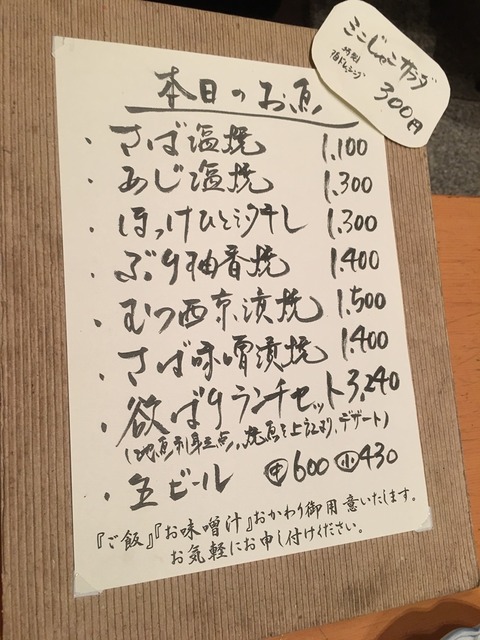 ミニじゃこサラダ
特製
和ドレッシング
300円
本日のお魚
・さば塩焼 1.100
・あじ塩焼 1.300
・ほっけひと汐干し 1.300
・ぶり柚香焼 1.400
・むつ西京漬焼 1.500
・さば味噌漬焼 1.400
・欲ばりランチセット 3,240
(地魚刺身三点、焼魚を上記より、デザート)
・生ビール ㊥600 ㊙430
『ご飯』『お味噌汁』おかわり御用意いたします。
お気軽にお申し付けください。